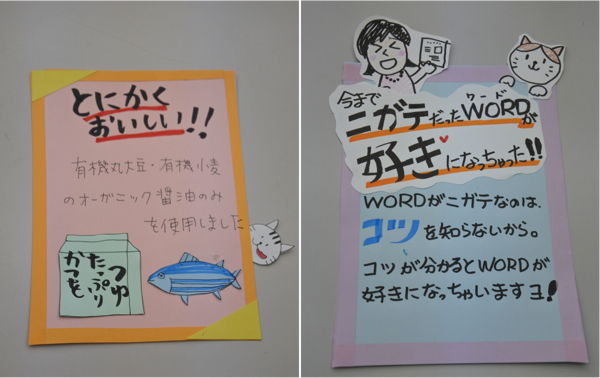 とにかく
おいしい!!
有機丸大豆・有機小麦
のオーガニック醤油のみ
を使用しました
つゆ
たっぷり
かつを
今まで
ニガテだったWORDが
ワード
好きになっちゃった!!
WORDがニガテなのは、
コツを知らないから。
コツが分かるとWORDが
好きになっちゃいますヨ!